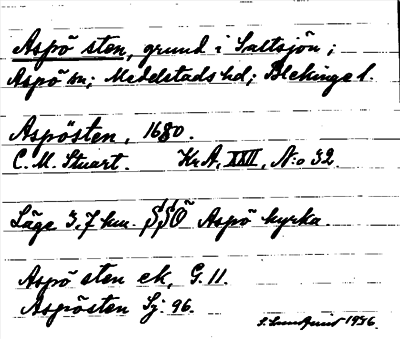 Aspö sten, grund i Saltsjön;
Aspö sn; Medelstads hd; Blekinge l.
Aspösten, 1680.
C. M. Stuart. KrA, XXII, N:o 32.
Läge 3,7 km. SSÖ Aspö kyrka.
Aspö sten ek, G. 11.
Aspösten Sj: 96.
S. Lundquist 1956.